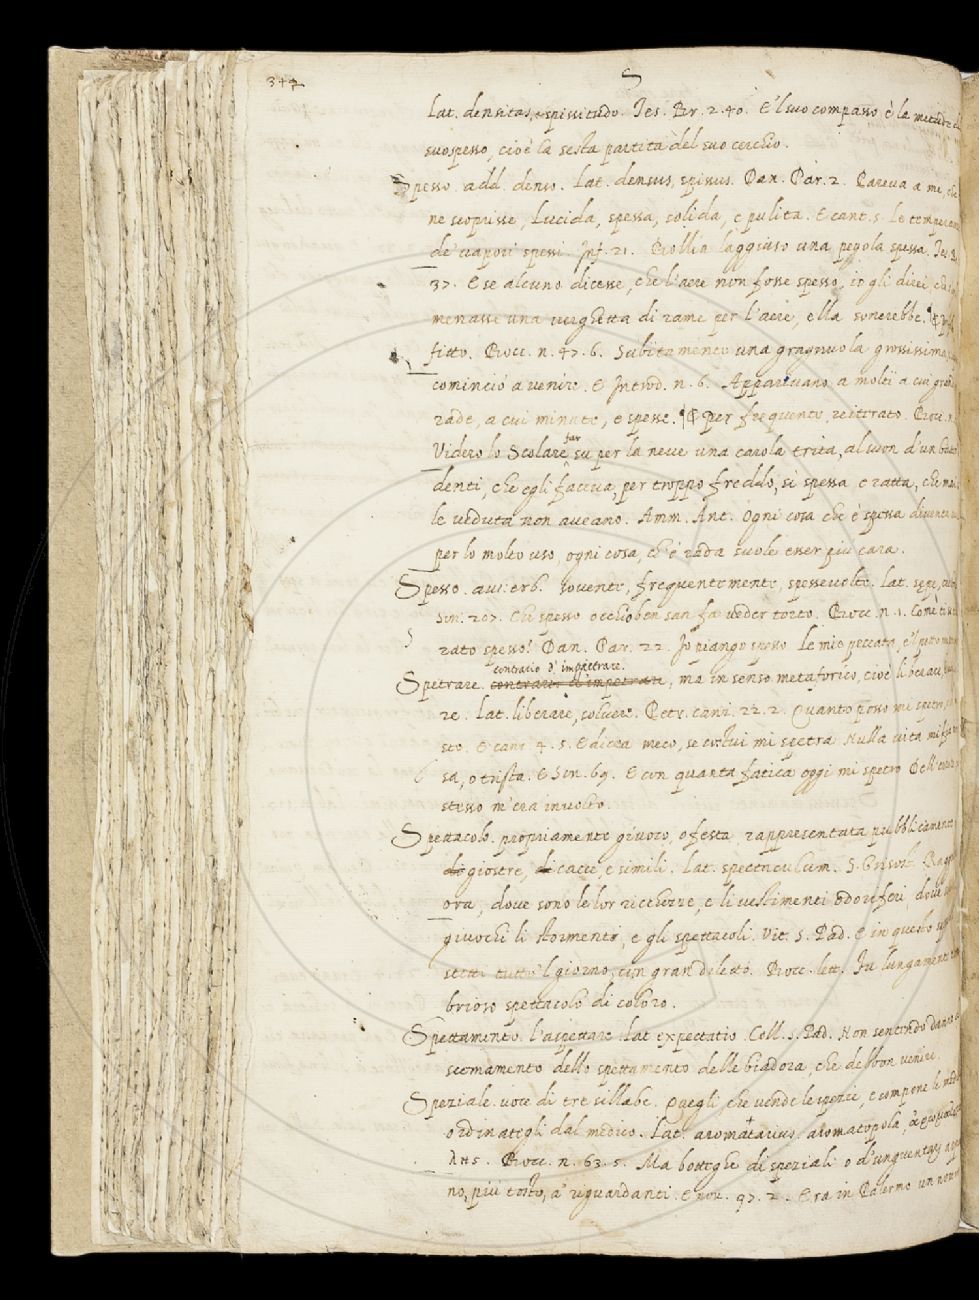 344
S
Lat. densitas, spissitudo. Tes. Br. 2. 40. E 'l suo compasso è la metade
suo spesso, cioè la sesta partita del suo cerchio.
Spesso. add. denso. Lat. densus, spissus. Dan. Par. 2. Pareva a me, che
ne coprisse, Lucida, spessa, solida, e pulita. E cant. 5. Le temperava
de' vapori spessi. Inf. 21. Bollia laggiuso una pegola spessa. Tes. B.
37. E se alcuno dicesse, che l'aere non fosse spesso, io gli direi, che
menasse una verghetta di rame per l'aere, ella sonerebbe. ¶ Per
fitto. Bocc. n. 47. 6. Subitamente una gragnuola grossissima,
cominciò a venire. E Introd. n. 6. Apparivano a molti a cui grandi
rade, a cui minute, e spesse. ¶ Per frequente, reiterato. Bocc. n.
Videro lo Scolare far su per la neve una carola trita, al suon d'un batter
denti, che egli faceva, per troppo freddo, sì spessa e ratta, che mai
le veduta non aveano. Amm. Ant. Ogni cosa che è spessa diventa
per lo molto uso, ogni cosa, ch'è rada suole esser più cara.
Spesso. avverb. sovente, frequentemente, spessevolte. Lat. sepe,
Son. 207. Che spesso occhio ben san fa veder torto. Bocc. n. 1. Come
rato spesso! Dan. Par. 22. Io piango spesso Le mie peccata, e 'l petto
contrario d' impetrare.
Spetrare. contrario di impetrare, ma in senso metaforico, cioè liberare,
re. Lat. liberare, solvere. Petr. canz. 22. 2. Quanto posso mi spetro,
sto. E canz. 4. 5. E dicea meco, se costui mi spetra Nulla vita mi fia
sa, o trista. E Son. 69. E con quanta fatica oggi mi spetro Dell'
stesso m'era involto.
Spettacolo. propriamente giuoco, o festa rappresentata pubblicamente
di giostre, di cacce, e simili. Lat. spectaculum. S. Grisost.
ora, dove sono le lor ricchezze, e li vestimenti odoriferi, dove
giuochi li stormenti, e gli spettacoli. Vit. S. Pad. E in questo
stetti tutto 'l giorno, con gran diletto. Bocc. lett. Fu lungamente
brioso spettacolo di coloro.
Spettamento. l'aspettare. lat. expectatio. Coll. S. Pad. Non sentendo danno
scemamento dello spettamento delle biadora, che debbon venire.
Speziale. voce di tre sillabe. Quegli che vende le spezie, e compone le
ordinategli dal medico. Lat. aromatarius. aromatopola,
Bocc. n. 63. 5. Ma botteghe di speziali o d'unguentarj
no, più tosto, a' riguardanti. E nov. 97. 2. Era in Palermo un nostro